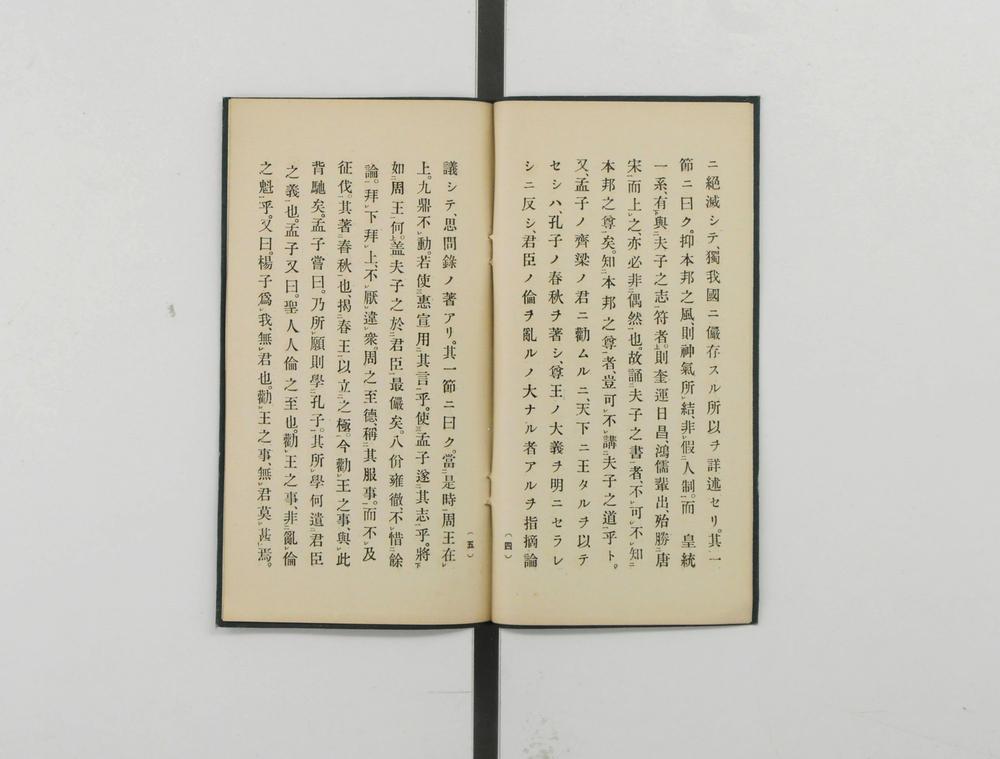 ニ絶滅シテ、獨我國ニ儼存スル所以ヲ詳述セリ。其一
節ニ曰ク。抑本邦之風、則神氣所レ結、非レ假二人制一。而　皇統
一系、有下與二夫子之志一符者上。則奎運日昌、鴻儒輩出、殆勝二唐
宋一而上レ之、亦必非二偶然一也。故誦二夫子之書一者、不レ可レ不レ知二
本邦之尊一矣。知二本邦之尊一者、豈可レ不レ講二夫子之道一乎ト。
又、孟子ノ齊梁ノ君ニ勸ムルニ、天下ニ王タルヲ以テ
セシハ、孔子ノ春秋ヲ著シ、尊王ノ大義ヲ明ニセラレ
シニ反シ、君臣ノ倫ヲ亂ルノ大ナル者アルヲ指摘論
（四）
議シテ、思問錄ノ著アリ。其一節ニ曰ク。當二是時一周王在レ
上。九鼎不レ動。若使三惠宣用二其言一乎。使三孟子遂二其志一乎。將下
如二周王一何上。盖夫子之於二君臣一最儼矣。八佾雍徹、不レ惜二餘
論一。拜レ下拜レ上、不レ厭レ違レ衆。周之至德、稱二其服事一。而不レ及二
征伐一。其著二春秋一也、揭二春王一以立二之極一。今勸レ王之事、與レ此
背馳矣。孟子嘗曰。乃所レ願則學二孔子一。其所レ學何遺二君臣
之義一也。孟子又曰。聖人人倫之至也。勸レ王之事、非レ亂レ倫
之魁一乎。又曰。楊子爲レ我、無レ君也。勸レ王之事、無レ君莫レ甚レ焉。
（五）